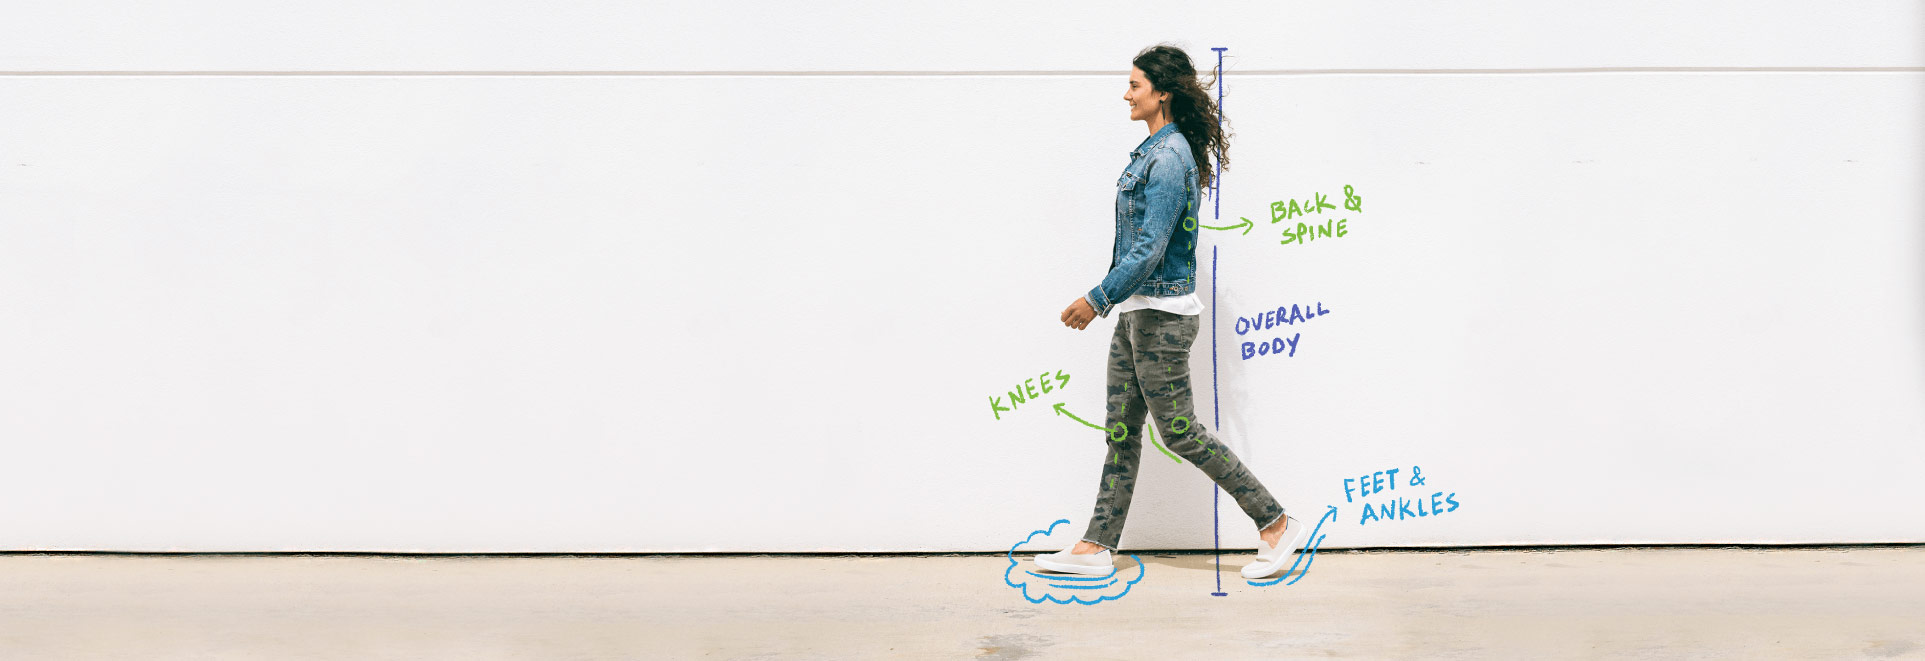 BACK &
SPINE
OVERALL
BODY
KNEES
FEET &
ANKLES